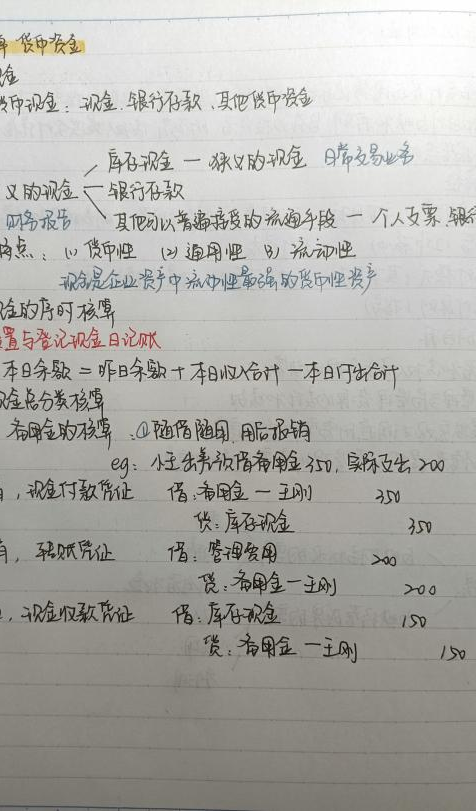 章 货币资金
现金
货币现金：现金、银行存款、其他货币资金
库存现金 — 狭义的现金 日常交易业务
义的现金 银行存款
财务报告 其他可以普遍接受的流通手段 — 个人支票、银行
特点：(1) 货币性 (2) 通用性 (3) 流动性
现金是企业资产中流动性最强的货币性资产
现金的序时核算
设置与登记现金日记账
本日余额 = 昨日余额 + 本日收入合计 — 本日付出合计
现金总分类核算
备用金的核算：①随借随用、用后报销
eg：小王出差预借备用金350，实际支出200
，现金付款凭证 借：备用金 — 王刚 350
贷：库存现金 350
，转账凭证 借：管理费用 200
贷：备用金 — 王刚 200
，现金收款凭证 借：库存现金 150
贷：备用金 — 王刚 150